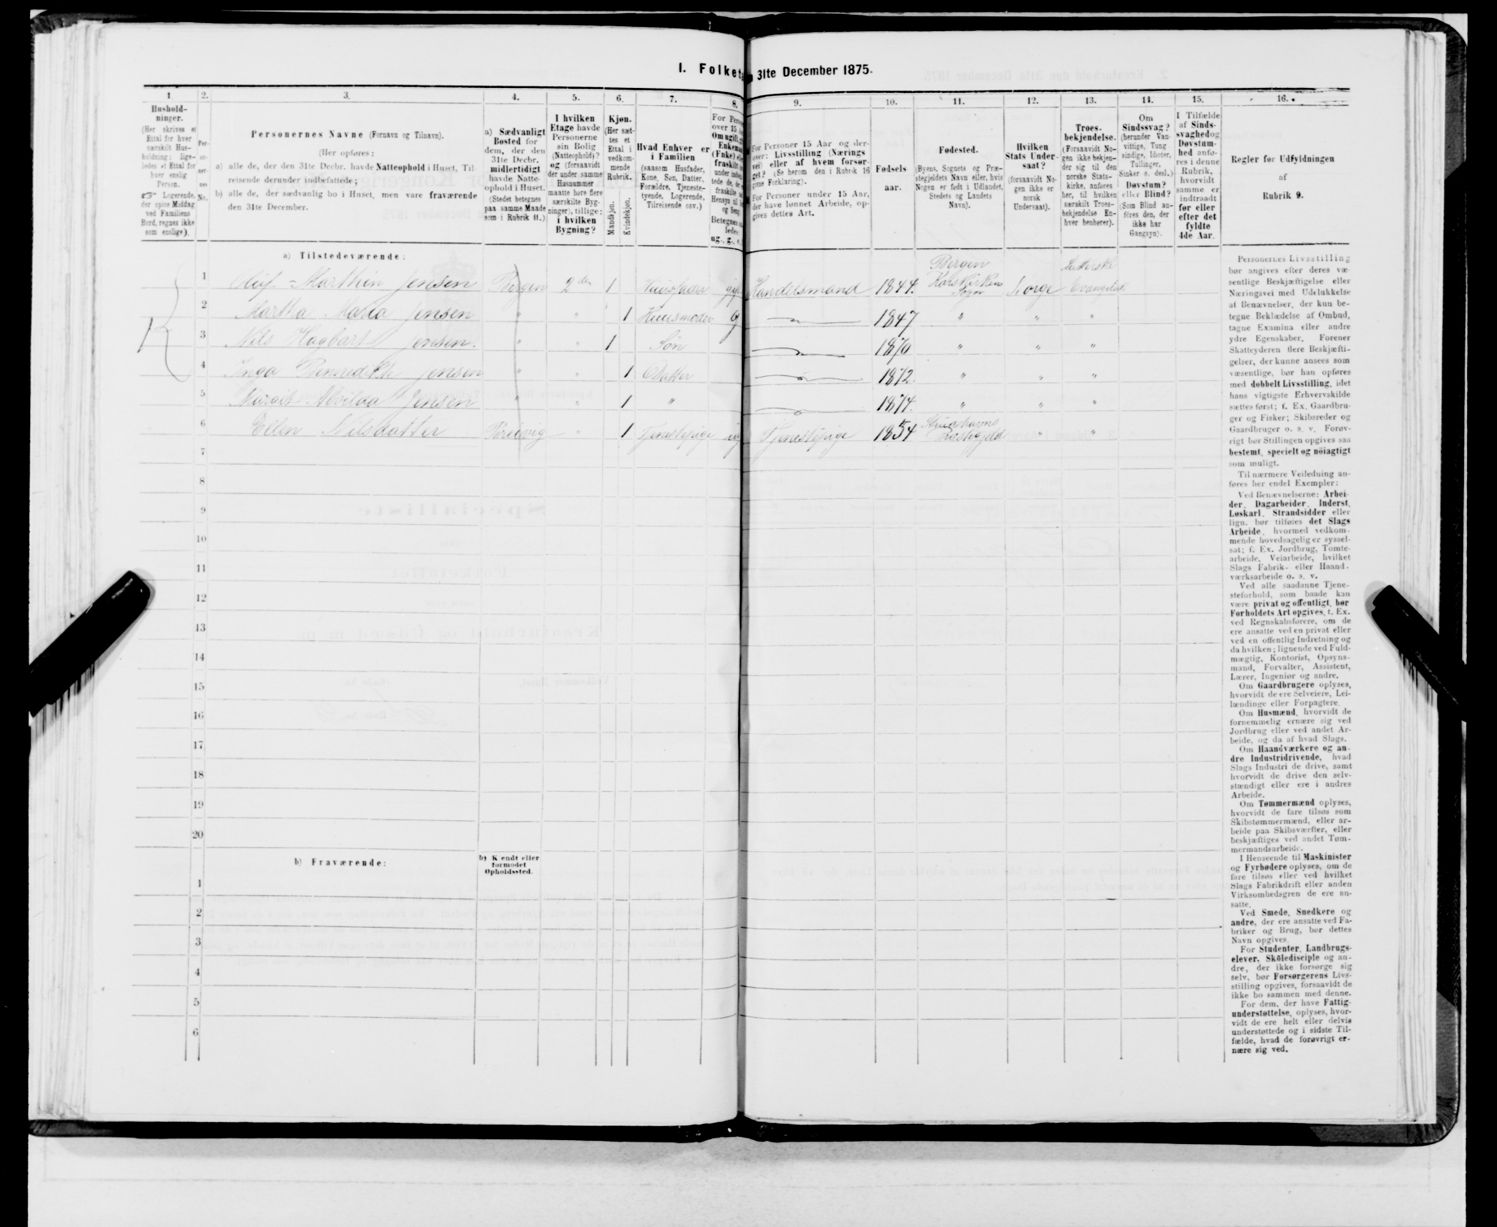 I. Folket 31te December 1875.
1.
Hushold-
ninger.
(Her skrives et
Ettal for hver
særskilt Hus-
holdning; lige-
ledes et Ettal for
hver enslig
Person.
Logerende,
der spise Middag
ved Familiens
Bord, regnes ikke
som enslige).
2.
Per-
No.
3.
Personernes Navne (Fornavn og Tilnavn).
(Her opføres:
a) alle de, der den 31te Decbr. havde Natteophold i Huset, Til
reisende derunder indbefattede;
b) alle de, der sædvanlig bo i Huset, men vare fraværende
den 31te December.
4.
a) Sædvanligt
Bosted for
dem, der den
31te Decbr.
midlertidigt
havde Natte-
ophold i Huset.
(Stedet betegnes
paa samme Maade
som i Rubrik 11.)
5.
I hvilken
Etage havde
Personerne
sin Bolig
(Natteophold)?
og (forsaavidt
der under samme
Husnummer
maatte høre flere
særskilte Byg-
ninger), tillige:
i hvilken
Bygning?
6.
Kjøn.
(Her sæt-
tes et
Ettal i
vedkom-
mende
Rubrik.
Mandkjøn.
Kvindekjøn.
7.
Hvad Enhver er
i Familien
(saasom Husfader,
Kone, Søn, Datter,
Forældre, Tjeneste-
tyende, Logerende,
Tilreisende osv.)
8.
For Perso
over 15
Om ugift,
Enkema
(Fnke) el
fraskilt
ug., g., e.
9.
For Personer 15 Aar og der-
over: Livsstilling (Nærings
vei) eller af hvem forsør-
get? (Se herom den i Rubrik 16
givne Forklaring).
For Personer under 15 Aar,
der have lønnet Arbeide, op-
gives dettes Art.
10.
Fødsels
aar.
11.
Fødested.
(Byens, Sognets og Præ-
stegjeldets Navn eller, hvis
Nogen er født i Udlandet,
Stedets og Landets
Navn).
12.
Hvilken
Stats Under-
saat?
(forsaavidt No-
gen ikke er
norsk
Undersaat).
13.
Troes-
bekjendelse.
(Forsaavidt No-
gen ikke bekjen-
der sig til den
norske Stats-
kirke, anføres
her, til hvilken
særskilt Troes-
bekjendelse En-
hver henhører).
14.
Om
Sindssvag?
(herunder Van-
vittige, Tung
sindige, Idioter,
Tullinger,
Sinker o. desl.)
Døvstum?
eller Blind?
(Som Blind an-
føres den, der
ikke har
Gangsyn).
15.
I Tilfælde
af Sinds-
svaghed og
Døvstum-
hed anfø-
res i denne
Rubrik,
hvorvidt
samme er
indtraadt
før eller
efter det
fyldte
4de Aar.
16.
Regler for Udfyldningen
af
Rubrik 9.
a) Tilstedeværende:
1 Marthin Jensen Bergen 2den 1 Huusfader Handelsmand 1844. Bergen Korskirken Sogn Norge Lutherske Evangelisk
2 Martha Maria Jensen " " 1 Huusmoder g — 1847 " " "
3 Nils Hagbart Jensen. " " 1 Søn — 1870 " " "
4 Inga Jensen " " 1 Datter — 1872. " " "
5 Jensen " " 1 " — 1874. " " "
6 Ellen Nilsdatter 1 Tjenestepige ug Tjenestepige 1854 Præstegjeld " "
7
8
9
10
11
12
13
14
15
16
17
18
19
20
b) Fraværende:
b) Kendt eller
formodet
Opholdssted.
1
2
3
4
5
6
Personernes Livsstilling
bør angives efter deres væ
sentlige Beskjæftigelse eller
Næringsvei med Udelukkelse
af Benævnelser, der kun be-
tegne Bekladelse af Ombud,
tagne Examina eller andre
ydre Egenskaber. Forener
Skatteyderen flere Beskjæfti-
gelser, der kunne ansees som
væsentlige, bør han opføres
med dobbelt Livsstilling, idet
hans vigtigste Erhvervskilde
sættes først; f. Ex. Gaardbru-
ger og Fisker; Skibsreder og
Gaardbruger o. s. v. Forøv-
rigt bør Stillingen opgives saa
bestemt, specielt og nøiagtigt
som muligt.
Til nærmere Veiledning an-
føres her endel Exempler:
Ved Benævnelserne: Arbei-
der, Dagarbeider, Inderst,
Løskarl, Strandsidder eller
lign. bør tilføies det Slags
Arbeide, hvormed vedkom-
mende hovedsagelig er syssel-
sat; f. Ex. Jordbrug, Tomte-
arbeide, Veiarbeide, hvilket
Slags Fabrik- eller Haand-
værksarbeide o. s. v.
Ved alle saadanne Tjene-
steforhold, som baade kan
være privat og offentligt, bør
Forholdets Art opgives, f. Ex.
ved Regnskabsførere, om de
ere ansatte ved en privat eller
ved en offentlig Indretning og
da hvilken; lignende ved Fuld-
mægtig, Kontorist, Opsyns-
mand, Forvalter, Assistent,
Lærer, Ingeniør og andre.
Om Gaardbrugere oplyses,
hvorvidt de ere Selveiere, Lei-
lændinge eller Forpagtere.
Om Husmænd, hvorvidt de
fornemmelig ernære sig ved
Jordbrug eller ved andet Ar-
beide, og da af hvad Slags.
Om Haandværkere og an-
dre Industridrivende, hvad
Slags Industri de drive, samt
hvorvidt de drive den selv-
stændigt eller ere i andres
Arbeide.
Om Tømmermænd oplyses,
hvorvidt de fare tilsøs som
Skibstømmermænd, eller ar-
beide paa Skibsværfter, eller
beskjæftiges ved andet Tøm-
mermandsarbeide.
I Henseende til Maskinister
og Fyrbødere oplyses, om de
fare tilsøs eller ved hvilket
Slags Fabrikdrift eller anden
Virksombedsgren de ere an-
satte.
Ved Smede, Snedkere og
andre, der ere ansatte ved Fa-
briker og Brug, bør dettes
Navn opgives.
For Studenter, Landbrugs-
elever, Skoledisciple og an-
dre, der ikke forsørge sig
selv, bør Forsørgerens Livs-
stilling opgives, forsaavidt de
ikke bo sammen med denne.
For dem, der have Fattig-
understøttelse, oplyses, hvor-
vidt de ere helt eller delvis
understøttede og i sidste Til-
fælde, hvad de forøvrigt er-
nære sig ved.